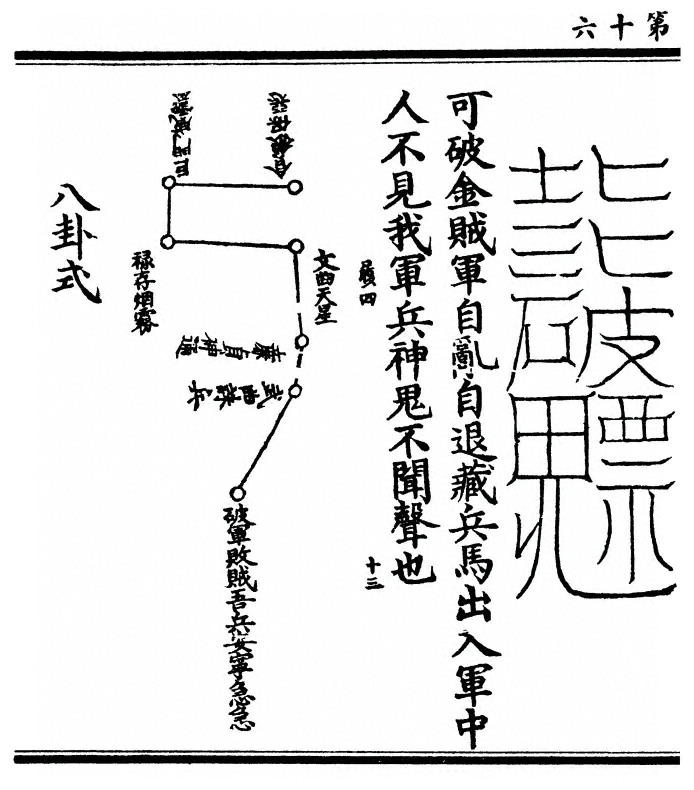 第十六
可破金賊軍自亂自退藏兵馬出入軍中
人不見我軍兵神鬼不聞聲也
十三
文曲天星
廉貞神通
武曲
兵
祿存烟霧
破軍敗賊吾兵安寧急急
八卦式